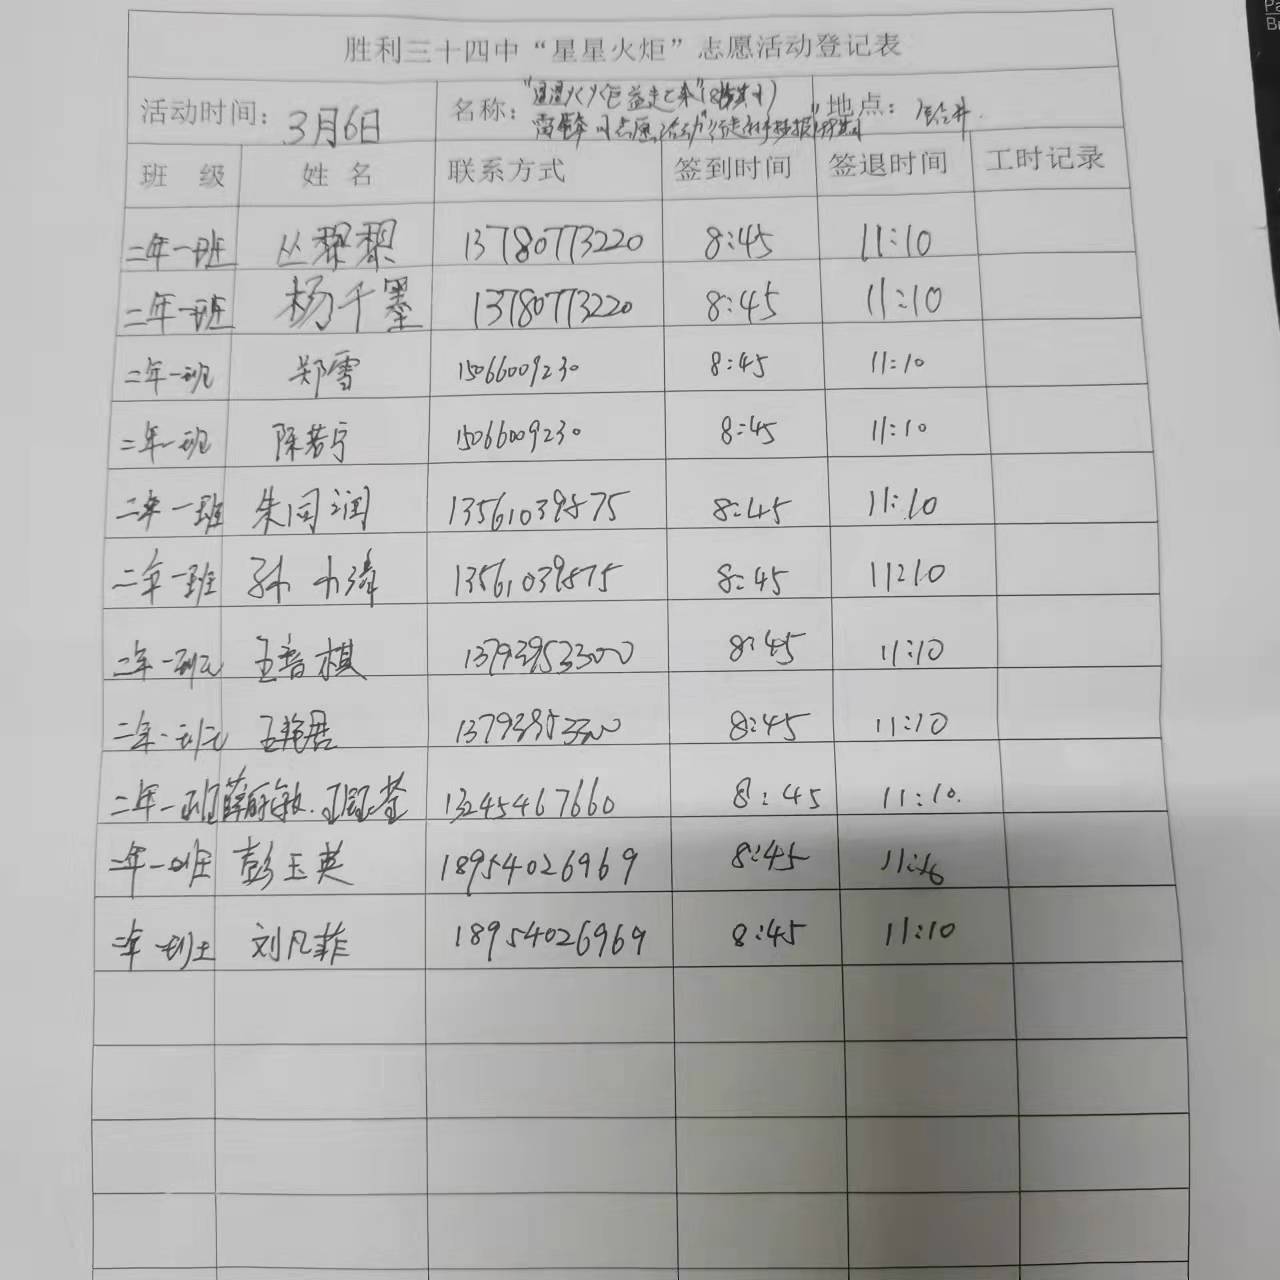 胜利三十四中“星星火炬”志愿活动登记表
活动时间： 3月6日 名称： 地点：
班 级 姓 名 联系方式 签到时间 签退时间 工时记录
二年一班 丛黎黎 13780773220 8:45 11:10
二年一班 杨千墨 13780773220 8:45 11:10
二年一班 郑雪 15066009230 8:45 11:10
二年一班 陈若宁 15066009230 8:45 11:10
二年一班 朱同润 13561039875 8:45 11:10
二年一班 孙 13561039875 8:45 11:10
二年一班 王音棋 13793953300 8:45 11:10
二年一班 王艳君 8:45 11:10
二年一班 13245467660 8:45 11:10.
二年一班 彭玉英 18954026969 8:45
二年一班 刘凡菲 18954026969 8:45 11:10